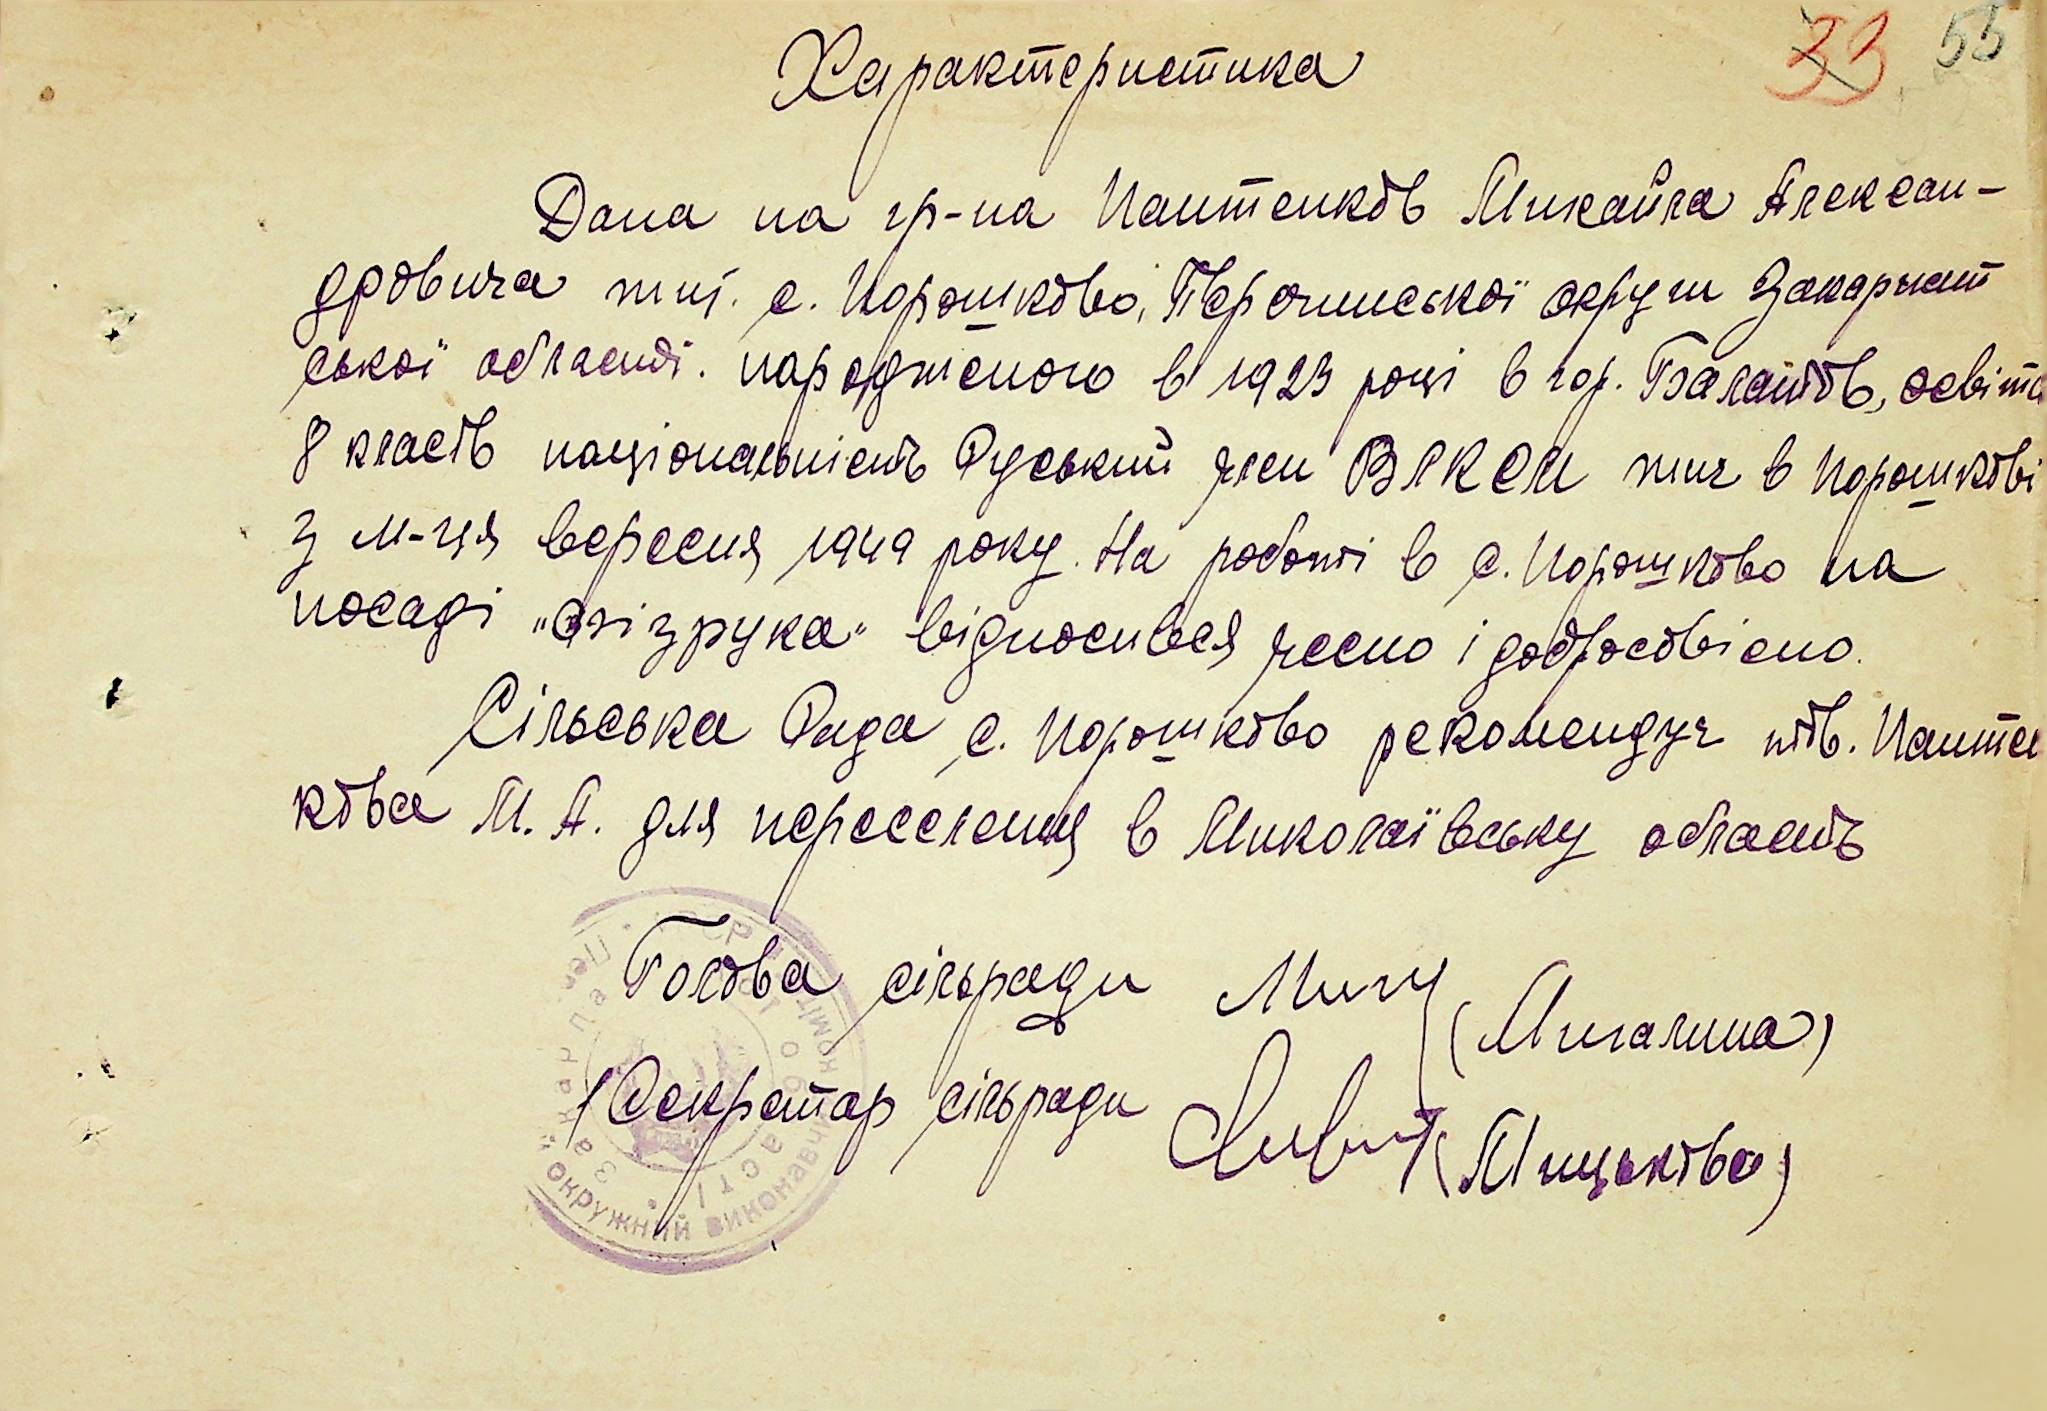 33 55
Характеристика
Дана на гр-на Пантенков Михайла Алексан-
дровича жит. с. Порошково, Перечинської округи Закарпат
ської області. народженого в 1923 році в гор. Балашов, освіта
8 класів національність Руський член ВЛКСМ жиє в Порошкові
з м-ця вересня 1949 року. На роботі в с. Порошково на
посаді "фізрука" відносився чесно і добросовісно.
Сільська Рада с. Порошково рекомендує тов. Панте
кова М. А. для переселення в Миколаївську область
Голова сільради (Мигалина)
Секретар сільради (Мицькова)
окружний виконавчий коміт
Закарпа
області